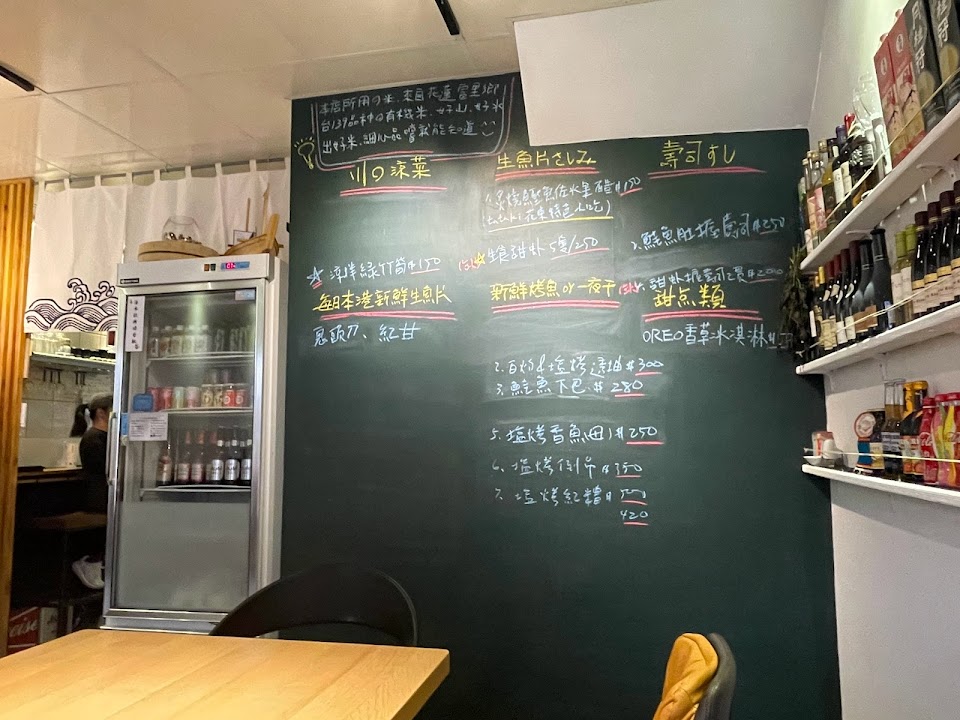 本店所用の米.來自花蓮富里鄉
台139品種の有機米.好山.好水
出好米.細心品嚐就能知道
川の涼菜
涼拌綠竹筍$150
每日本港新鮮生魚片
鬼頭刀、紅甘
生魚片さしみ
1.炙燒鰹魚佐水果醋$150
(tataki花東特色小吃)
生食甜虾5隻/250
新鮮烤魚or一夜干
2.百 &塩烤透抽$300
3.鮭魚下巴.$280
5.塩烤香魚 $250
6.塩烤 $350
7.塩烤紅糟
420
壽司すし
2.鮭魚肚握壽司$250
甜虾握壽司2貫$200
甜点類
OREO香草冰淇淋